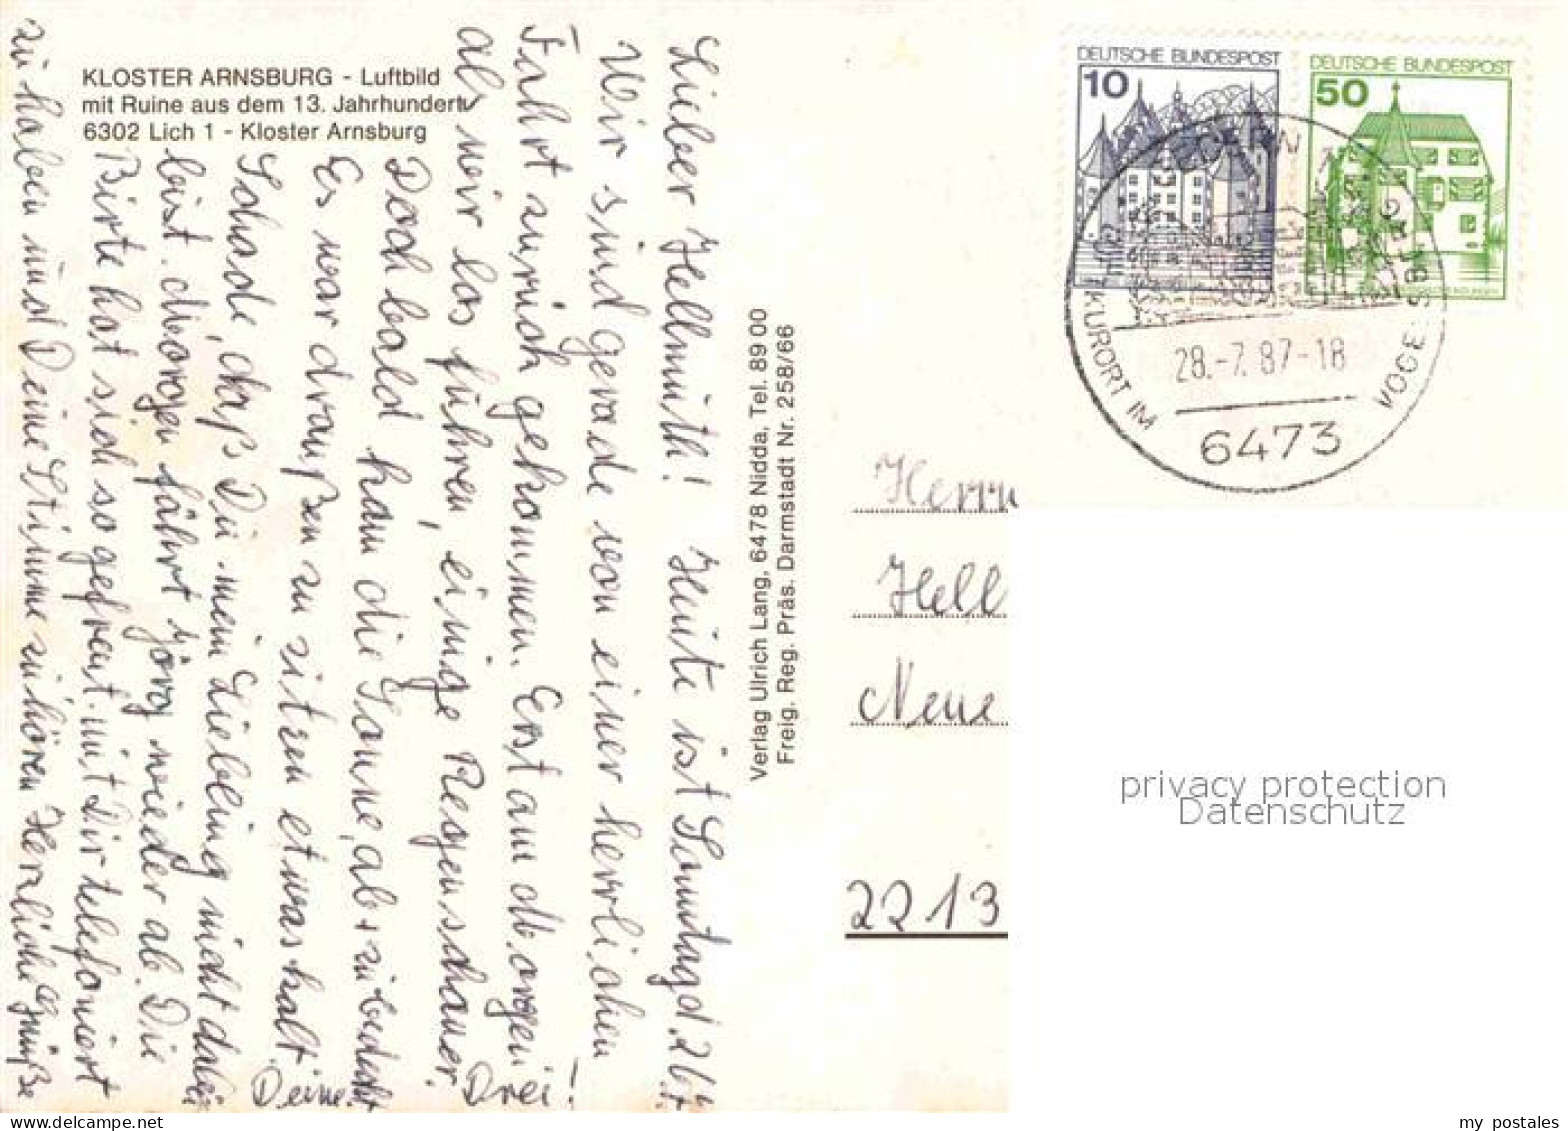 KLOSTER ARNSBURG - Luftbild
mit Ruine aus dem 13. Jahrhundert
6302 Lich 1 - Kloster Arnsburg
Lieber Hellmuth! Heute ist Sonntag d. 26.7.
Wir sind gerade von einer herrlichen
Fahrt zurück gekommen. Erst am Morgen
als wir los fuhren, einige Regenschauer.
Doch bald kam die Sonne, ab + zu bedeckt
Es war draußen zu sitzen etwas kalt.
Schade, daß Du mein Liebling nicht dabei
bist. Morgen fährt Jörg wieder ab. Die
Birte hat sich so gefreut mit Dir telefoniert
zu haben und Deine Stimme zu hören Herzliche Grüße
Deine Drei!
Verlag Ulrich Lang, 6478 Nidda, Tel. 89 00
Freig. Reg. Präs. Darmstadt Nr. 258/66
DEUTSCHE BUNDESPOST
10
DEUTSCHE BUNDESPOST
50
LUFTKURORT IM VOGELSBERG
28.-7.87-18
6473
Herrn
Hell
Neue
2213
privacy protection
Datenschutz
www.delcampe.net
my_postales